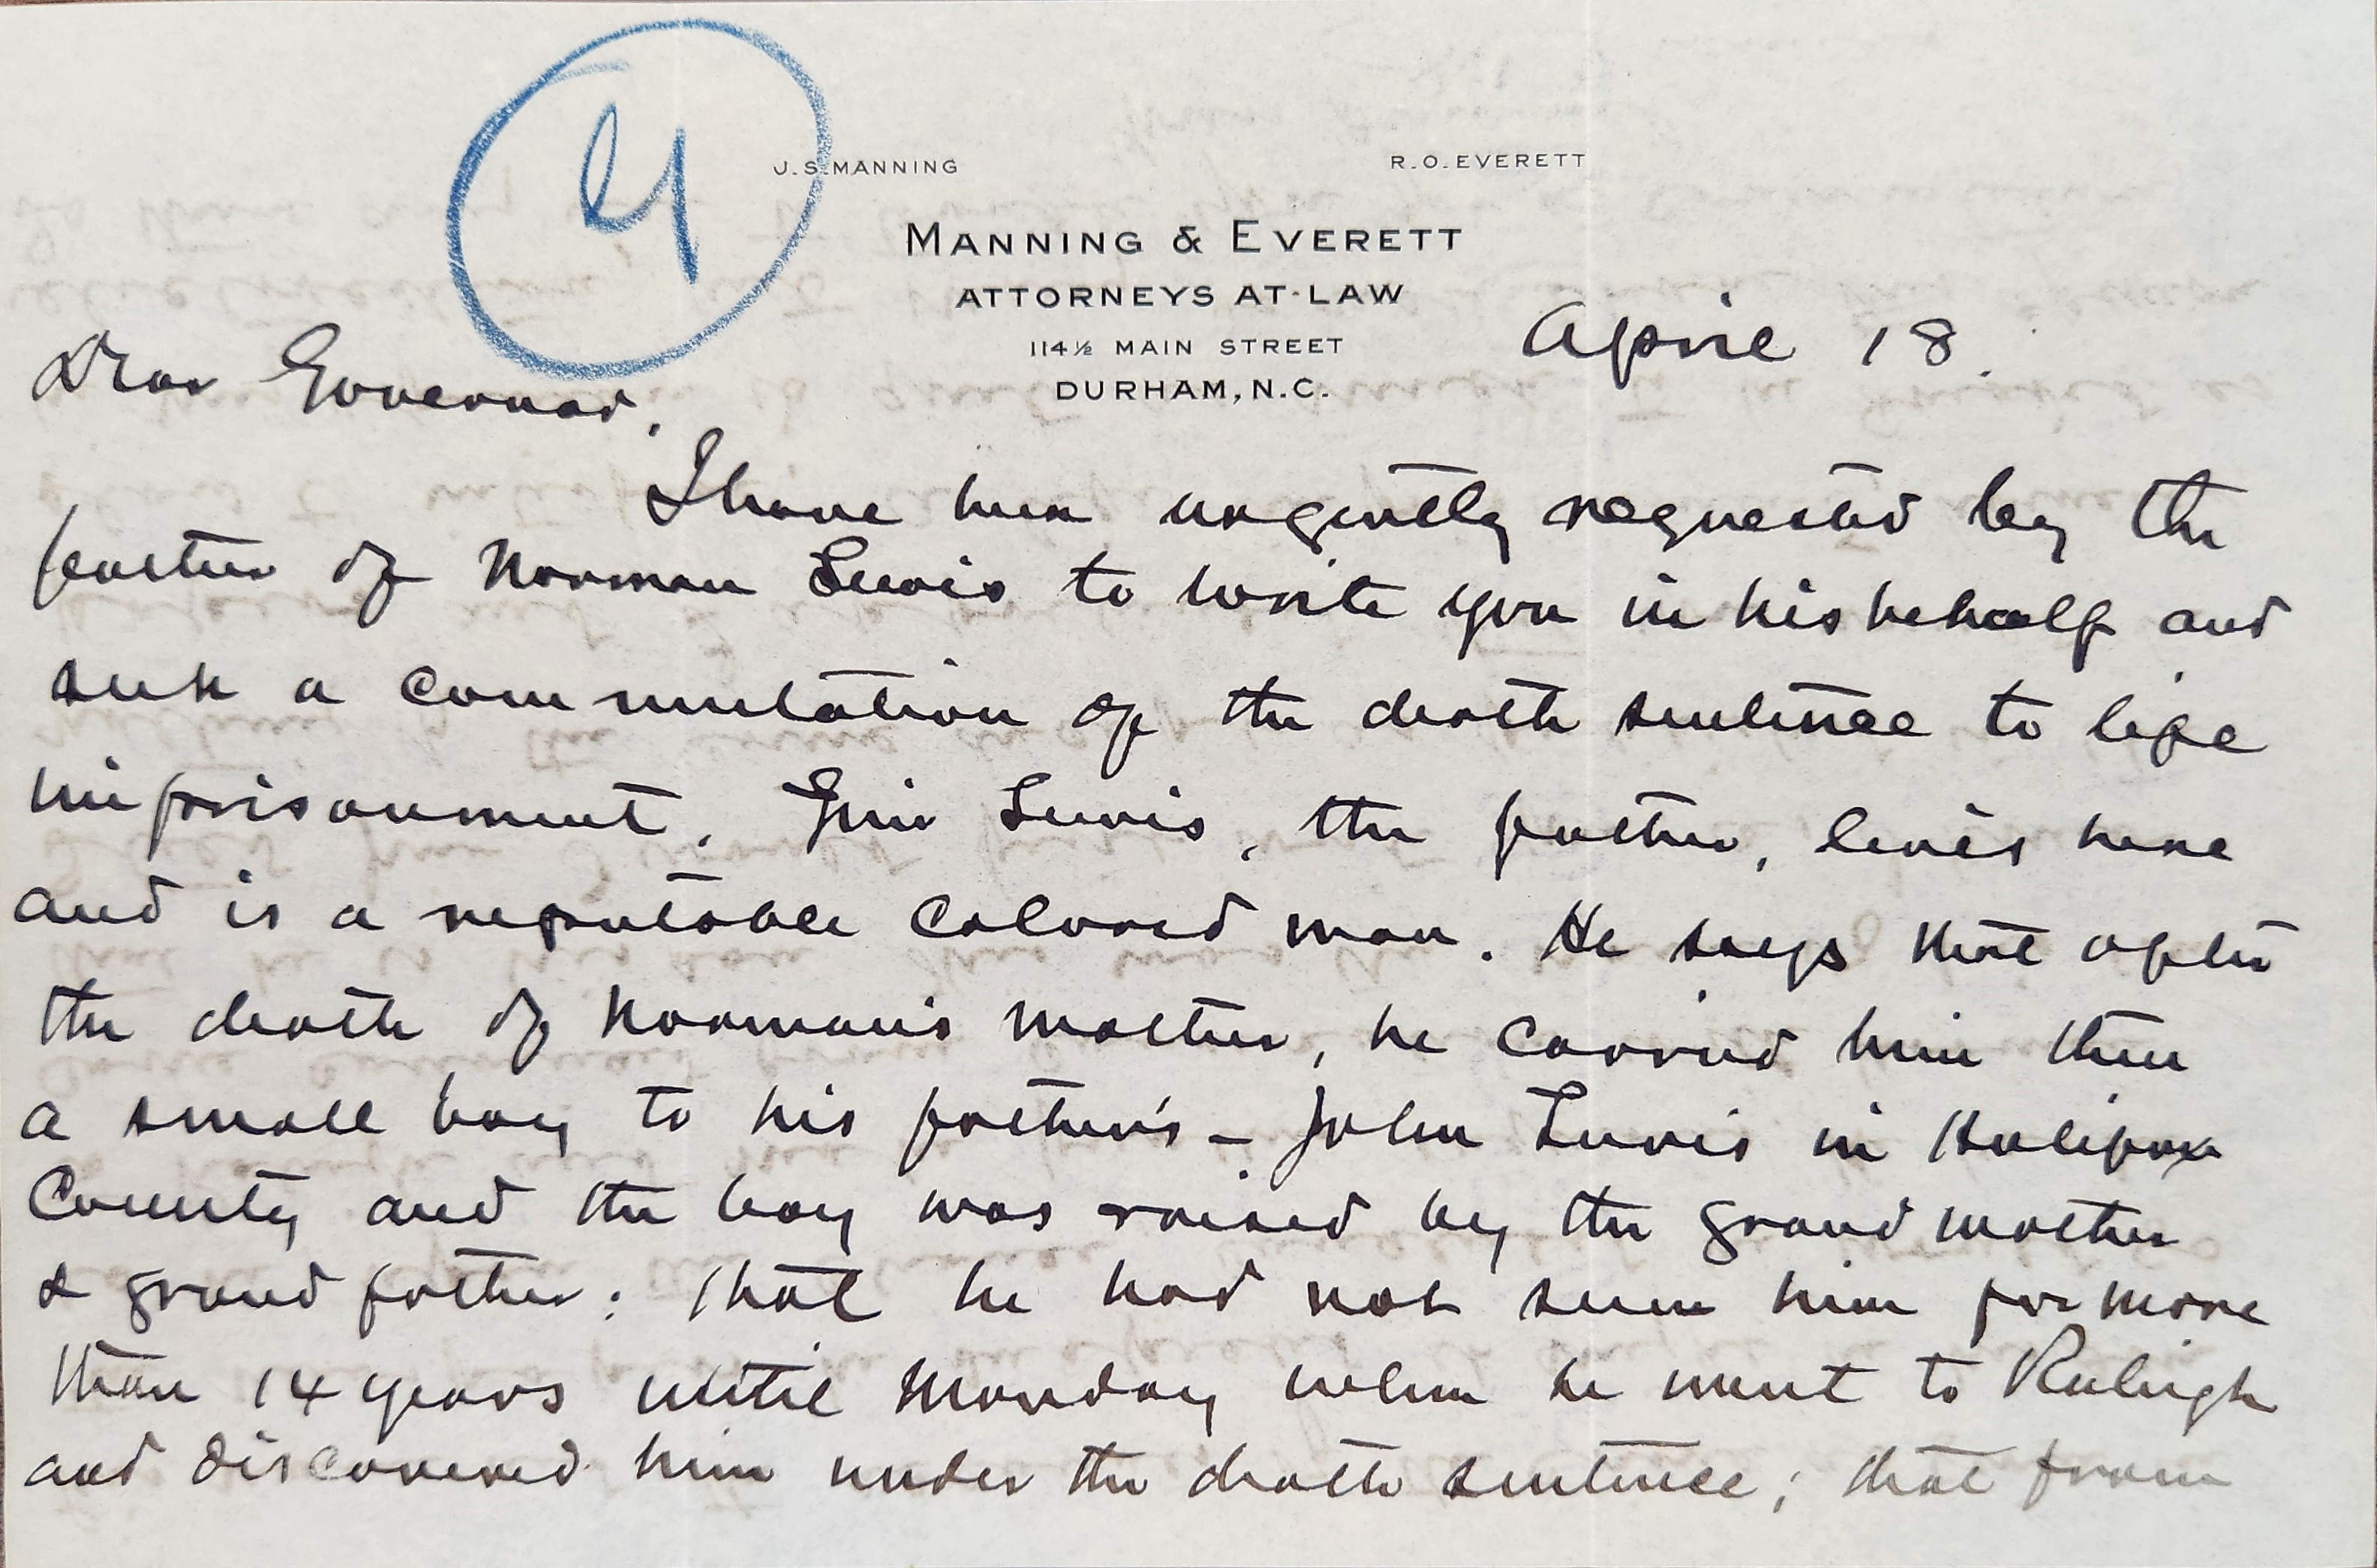 4
J.S. MANNING R.O. EVERETT
MANNING & EVERETT
ATTORNEYS AT-LAW
114½ MAIN STREET
DURHAM, N.C.
April 18.
Dear Governor,
I have been urgently requested by the
father of Norman Lewis to write you in his behalf and
seek a commutation of the death sentence to life
imprisonment. Lewis, the father, lives here
and is a reputable colored man. He says that after
the death of Norman's mother, he carried him then
a small boy to his father's – John Lewis in Halifax
County and the boy was raised by the grand mother
& grand father: that he had not seen him for more
than 14 years until Monday when he went to Raleigh
and discovered him under the death sentence; that from